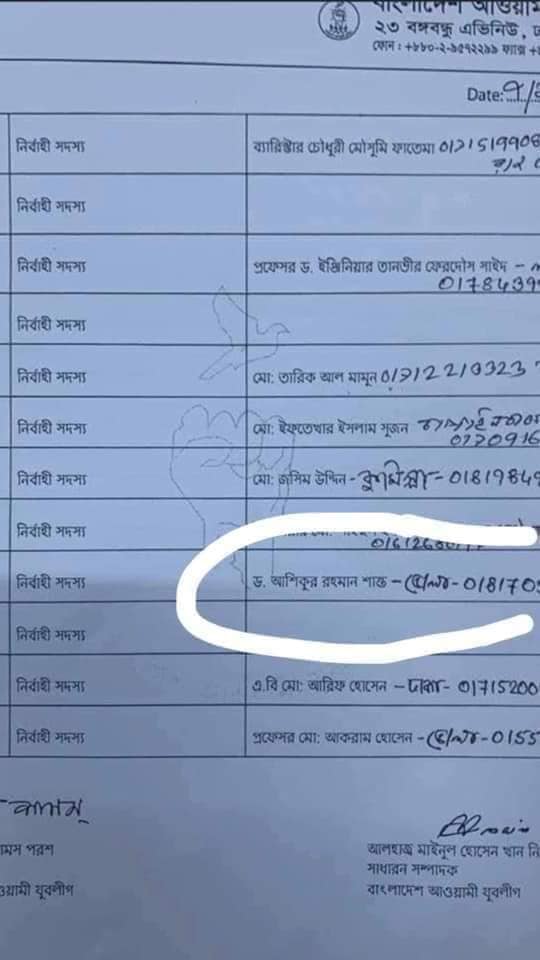 বাংলাদেশ আওয়াম
২৩ বঙ্গবন্ধু এভিনিউ,
ফোন : +৮৮০-২-৯৫৭২২৯৯ ফ্যাক্স
Date:
নির্বাহী সদস্য ব্যারিষ্টার চৌধুরী মৌসুমি ফাতেমা 017151990
নির্বাহী সদস্য
নির্বাহী সদস্য প্রফেসর ড. ইঞ্জিনিয়ার তানভীর ফেরদৌস সাইদ –
0178439
নির্বাহী সদস্য
নির্বাহী সদস্য মো: তারিক আল মামুন 01712210323
নির্বাহী সদস্য মো: ইফতেখার ইসলাম সুজন
0170916
নির্বাহী সদস্য মো: জসিম উদ্দিন - কুমিল্লা - 0181984
নির্বাহী সদস্য
নির্বাহী সদস্য ড. আশিকুর রহমান শান্ত - ভোলা - 01817
নির্বাহী সদস্য
নির্বাহী সদস্য এ.বি মো: আরিফ হোসেন - ঢাকা - 01715200
নির্বাহী সদস্য প্রফেসর মো: আকরাম হোসেন - ভোলা - 0155
মস পরশ
ওয়ামী যুবলীগ
আলহাজ্ব মাইনুল হোসেন খান নি
সাধারন সম্পাদক
বাংলাদেশ আওয়ামী যুবলীগ